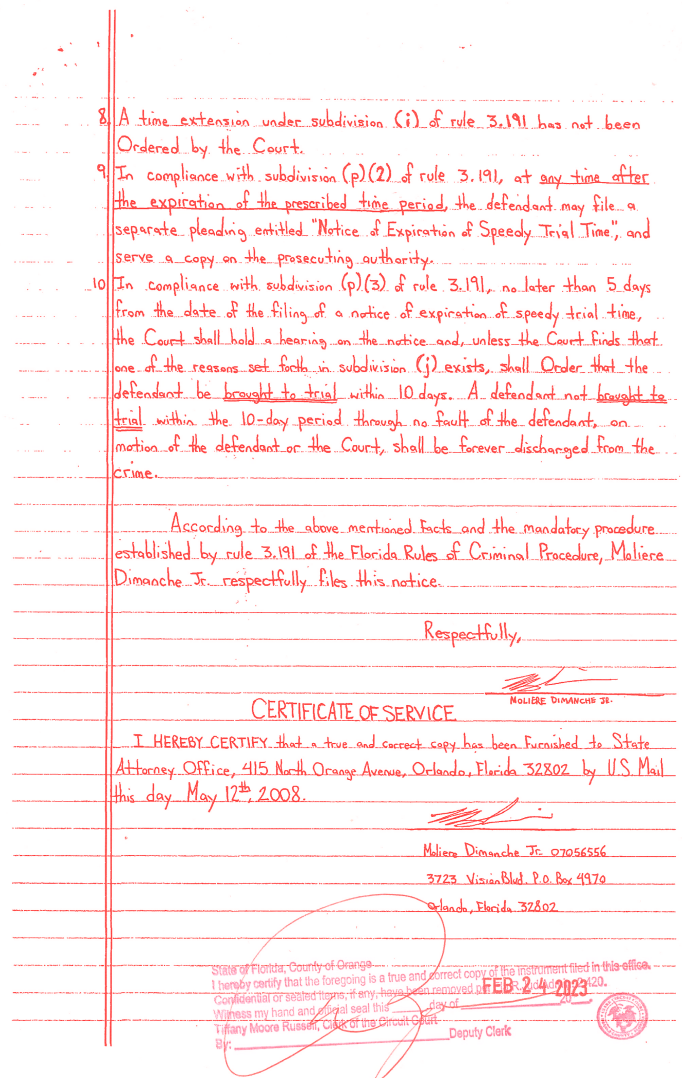 8. A time extension under subdivision (i) of rule 3.191 has not been
Ordered by the Court.
9. In compliance with subdivision (p)(2) of rule 3.191, at any time after
the expiration of the prescribed time period, the defendant may file a
separate pleading entitled "Notice of Expiration of Speedy Trial Time", and
serve a copy on the prosecuting authority.
10 In compliance with subdivision (p)(3) of rule 3.191, no later than 5 days
from the date of the filing of a notice of expiration of speedy trial time,
the Court shall hold a hearing on the notice and, unless the Court finds that
one of the reasons set forth in subdivision (j) exists, shall Order that the
defendant be brought to trial within 10 days. A defendant not brought to
trial within the 10-day period through no fault of the defendant, on
motion of the defendant or the Court, shall be forever discharged from the
crime.
According to the above mentioned facts and the mandatory procedure
established by rule 3.191 of the Florida Rules of Criminal Procedure, Moliere
Dimanche Jr. respectfully files this notice.
Respectfully,
MOLIERE DIMANCHE JR.
CERTIFICATE OF SERVICE
I HEREBY CERTIFY that a true and correct copy has been furnished to State
Attorney Office, 415 North Orange Avenue, Orlando, Florida 32802 by U.S. Mail
this day May 12th, 2008.
Moliere Dimanche Jr. 07056556
3723 Vision Blvd. P.O. Box 4970
Orlando, Florida 32802
State of Florida, County of Orange
I hereby certify that the foregoing is a true and correct copy of the instrument filed in this office.
Confidential or sealed items, if any, have been removed 2.420.
FEB 24 2023
Witness my hand and official seal this day of 20
Tiffany Moore Russell, Clerk of the Circuit Court
By: Deputy Clerk